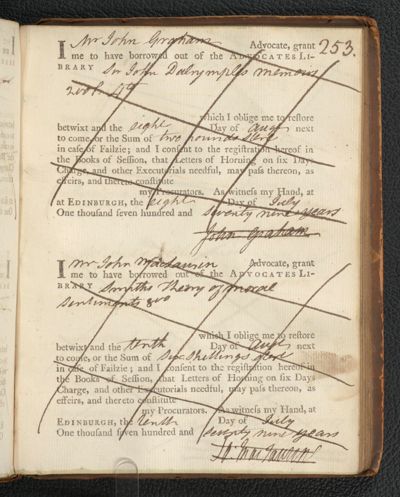 253.
I Mr John Graham Advocate, grant
me to have borrowed out of the ADVOCATES LI-
BRARY Sir John Dalrymples memoirs
2 vols 4to
which I oblige me to restore
betwixt and the eight Day of Augt next
to come, or the Sum of two pounds Ster
in case of Failzie; and I consent to the registration hereof in
the Books of Session, that Letters of Horning on six Days
Charge, and other Executorials needful, may pass thereon, as
effeirs, and thereto constitute
my Procurators. As witness my Hand, at
at EDINBURGH, the eight Day of July
One thousand seven hundred and seventy nine years
John Graham
I Mr John Maclaurin Advocate, grant
me to have borrowed out of the ADVOCATES LI-
BRARY Smiths Theory of moral
sentiments 8vo
which I oblige me to restore
betwixt and the tenth Day of Augt next
to come, or the Sum of Six shillings Ster
in case of Failzie; and I consent to the registration hereof in
the Books of Session, that Letters of Horning on six Days
Charge, and other Executorials needful, may pass thereon, as
effeirs, and thereto constitute
my Procurators. As witness my Hand, at
EDINBURGH, the tenth Day of July
One thousand seven hundred and seventy nine years